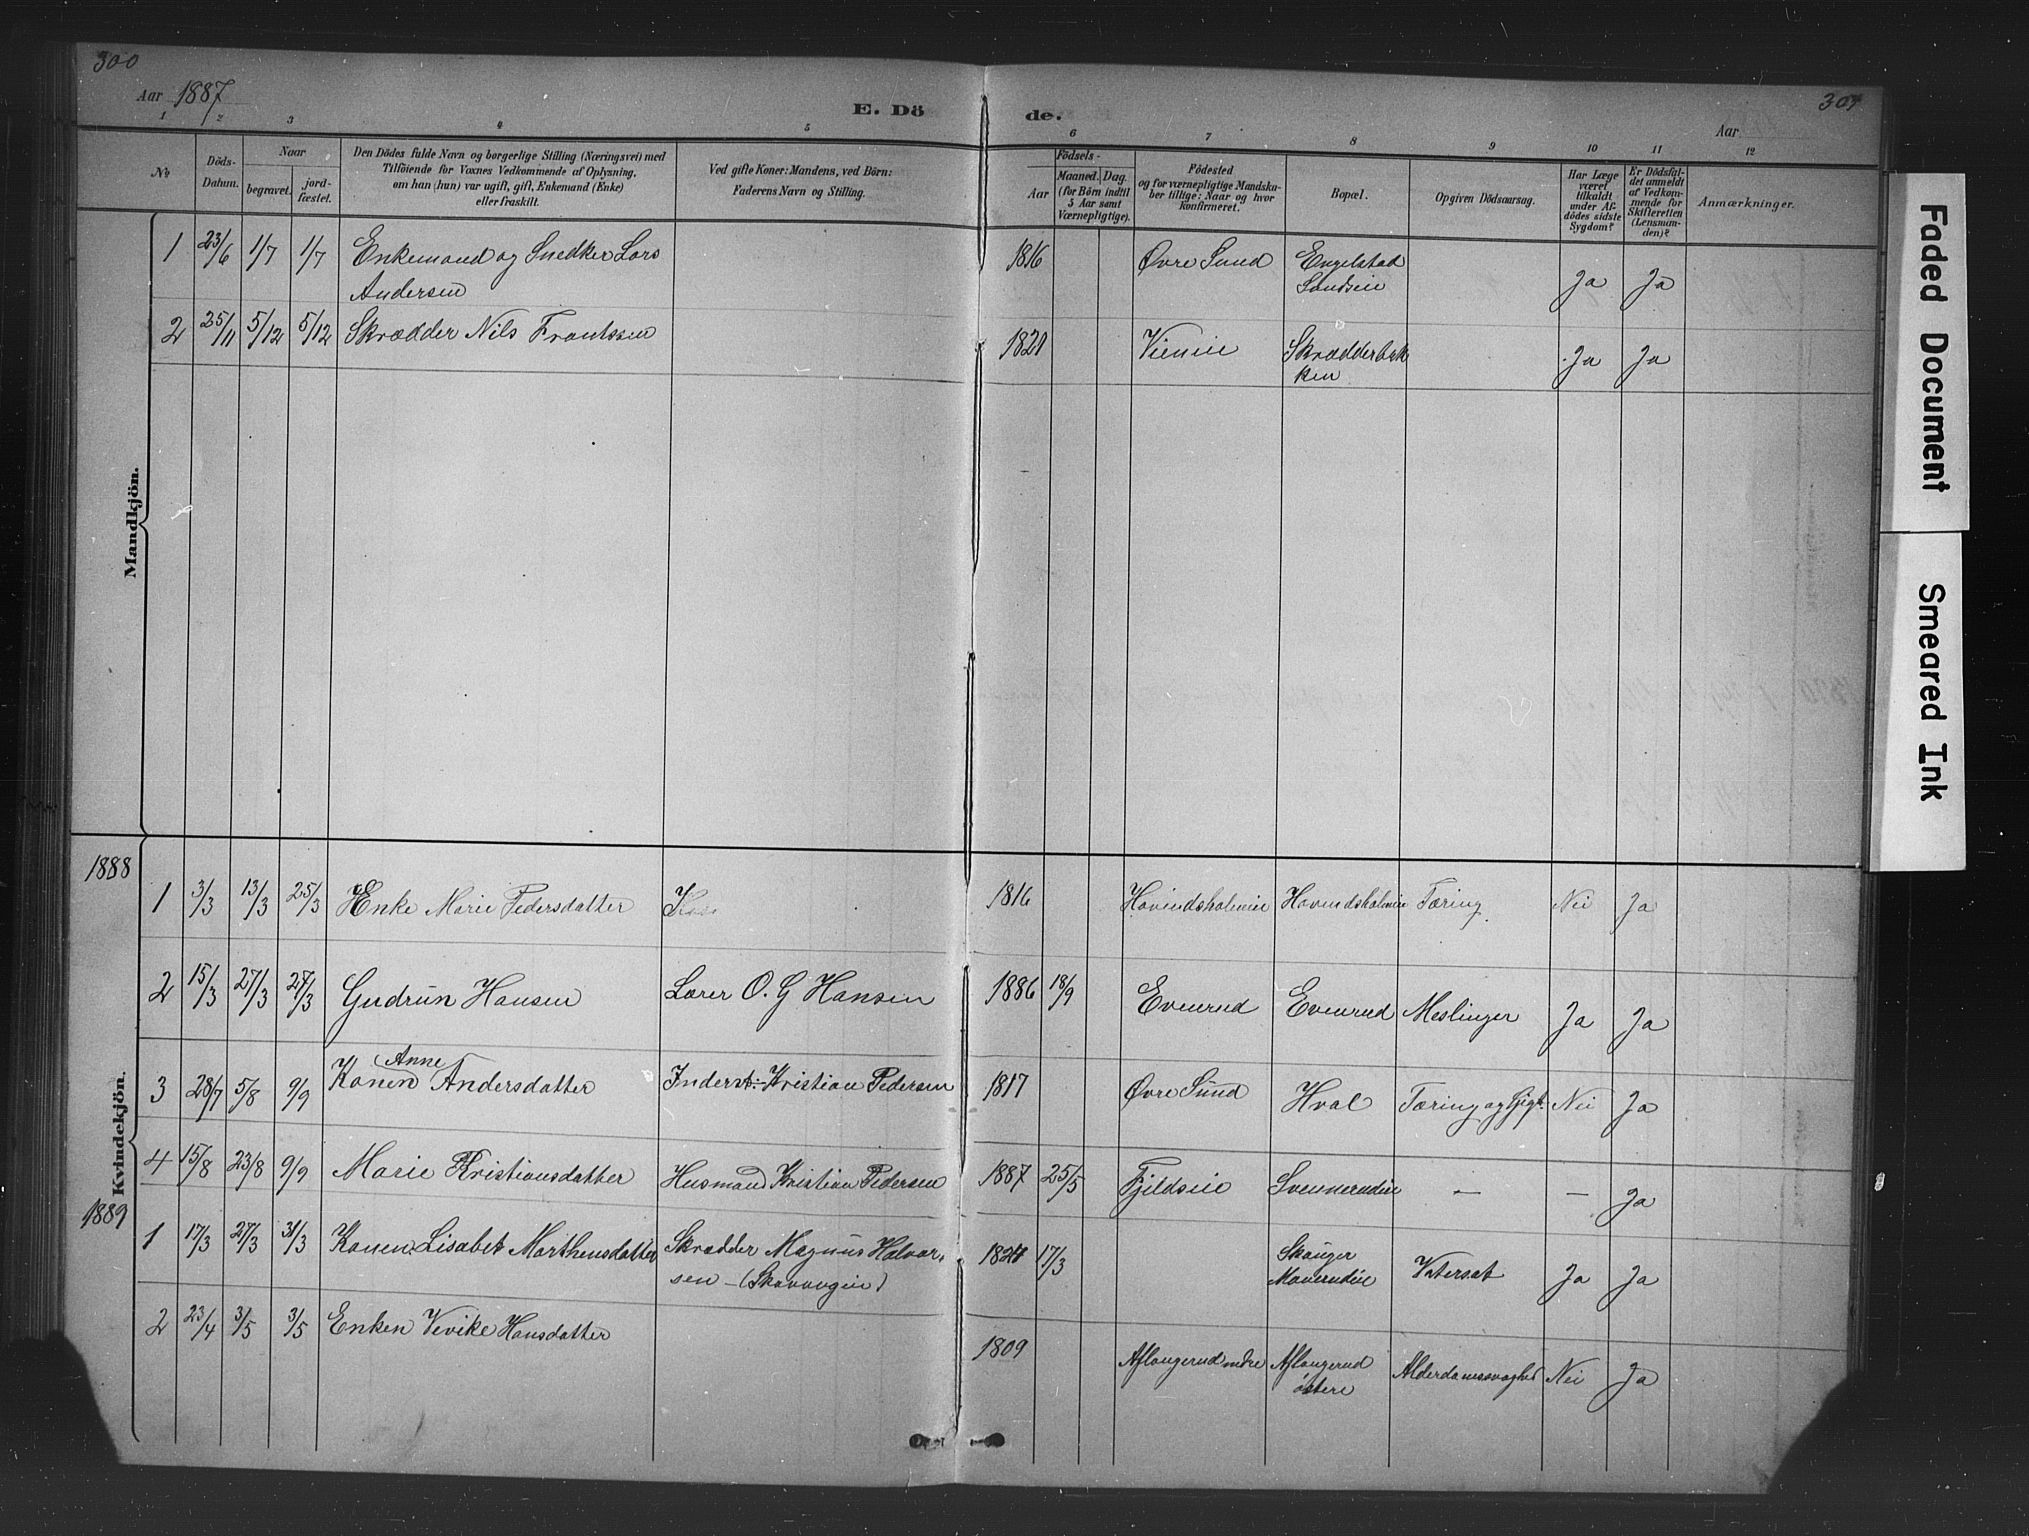 300
Aar 1887
E. Dö
de.
Aar
301
1 2 3 4 5 6 7 8 9 10 11 12
№
Döds-
Datum.
Naar
begravet.
jord-
fæstet.
Den Dödes fulde Navn og borgerlige Stilling (Næringsvei) med
Tilföiende for Voxnes Vedkommende af Oplysning,
om han (hun) var ugift, gift, Enkemand (Enke)
eller fraskilt.
Ved gifte Koner: Mandens, ved Börn:
Faderens Navn og Stilling.
Födsels-
Aar
Maaned. Dag.
(for Börn indtil
5 Aar samt
Værnepligtige).
Födested
og for værnepligtige Mandska-
ber tillige: Naar og hvor
konfirmeret.
Bopæl.
Opgiven Dödsaarsag.
Har Læge
været
tilkaldt
under Af-
dödes sidste
Sygdom?
Er Dödsfal-
det anmeldt
af Vedkom-
mende for
Skifteretten
(Lensman-
den)?
Anmærkninger.
Mandkjön.
1 23/6 1/7 1/7 Enkemand og Snedker Lars
Andersen
1816 Øvre Sund Engelstad
Sandseie
Ja Ja
2 25/11 5/12 5/12 Skrædder Nils Frantssen
1821 Skrædderbak
ken
Ja Ja
Kvindekjön.
1888
1 3/3 13/3 25/3 Enke Marie Pedersdatter
1816 Hovindsholmeie Hovindsholmeie Tæring Nei Ja
2 15/3 27/3 27/3 Gudrun Hansen Lærer O. G Hansen
1886 18/9 Evenrud Evenrud Meslinger Ja Ja
Anne
3 28/7 5/8 9/9 Konen Andersdatter Inderst: Kristian Pedersen
1817 Øvre Sund Hval Tæring og Gigt. Nei Ja
4 15/8 23/8 9/9 Marie Kristiansdatter Husmand Kristian Pedersen
1887 25/5 Fjeldseie Svennerudeie — — Ja
1889
1 17/3 27/3 31/3 Konen Lisabet Marthensdatter Skrædder Magnus Halvor-
sen
17/3 Skauger
Vatersot Ja Ja
2 23/4 3/5 3/5 Enken Vevike Hansdatter
1809 Aflangerud nedre Aflangerud
östere
Alderdomssvaghed Nei Ja
Faded Document
Smeared Ink